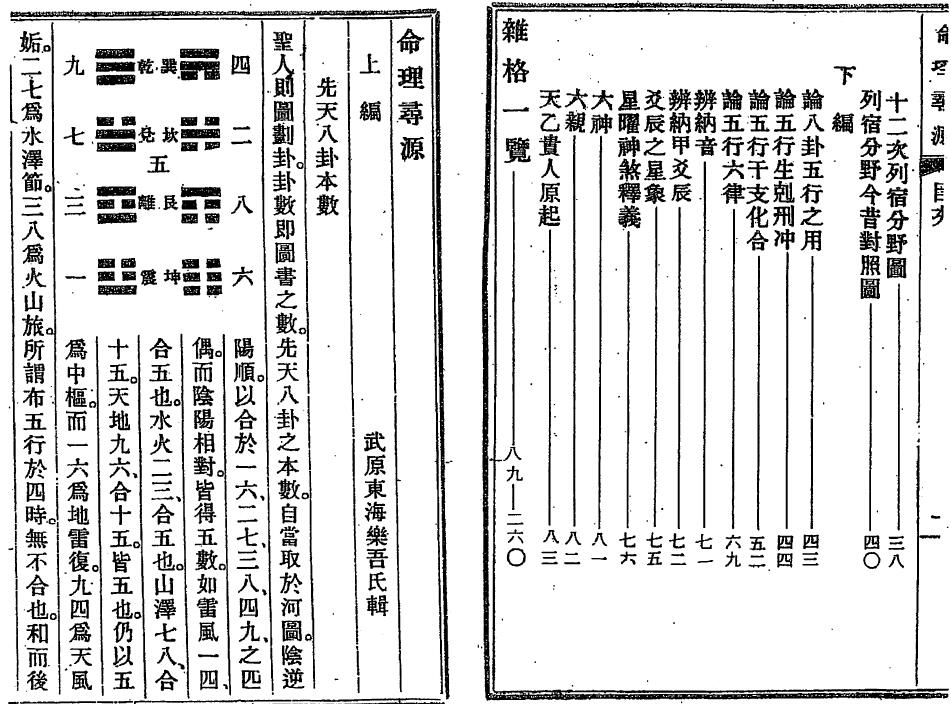 命理尋源 目次
二
十二次列宿分野圖 三八
列宿分野今昔對照圖 四〇
下編
論八卦五行之用 四三
論五行生剋刑冲 四四
論五行干支化合 五二
論五行六律 六九
辨納音 七一
辨納甲爻辰 七二
爻辰之星象 七五
星曜神煞釋義 七六
六神 八一
六親 八二
天乙貴人原起 八三
雜格一覽 八九—二六〇
命理尋源
上編 武原東海樂吾氏輯
先天八卦本數
聖人則圖劃卦。卦數即圖書之數。先天八卦之本數。自當取於河圖。陰逆
四二八六
巽坎艮坤
五
乾兌離震
九七三一
陽順。以合於一六、二七、三八、四九、之匹
偶。而陰陽相對。皆得五數。如雷風一四、
合五也。水火二三、合五也。山澤七八、合
十五。天地九六、合十五。皆五也。仍以五
爲中樞。而一六爲地雷復。九四爲天風
姤。二七爲水澤節。三八爲火山旅。所謂布五行於四時。無不合也。和而後